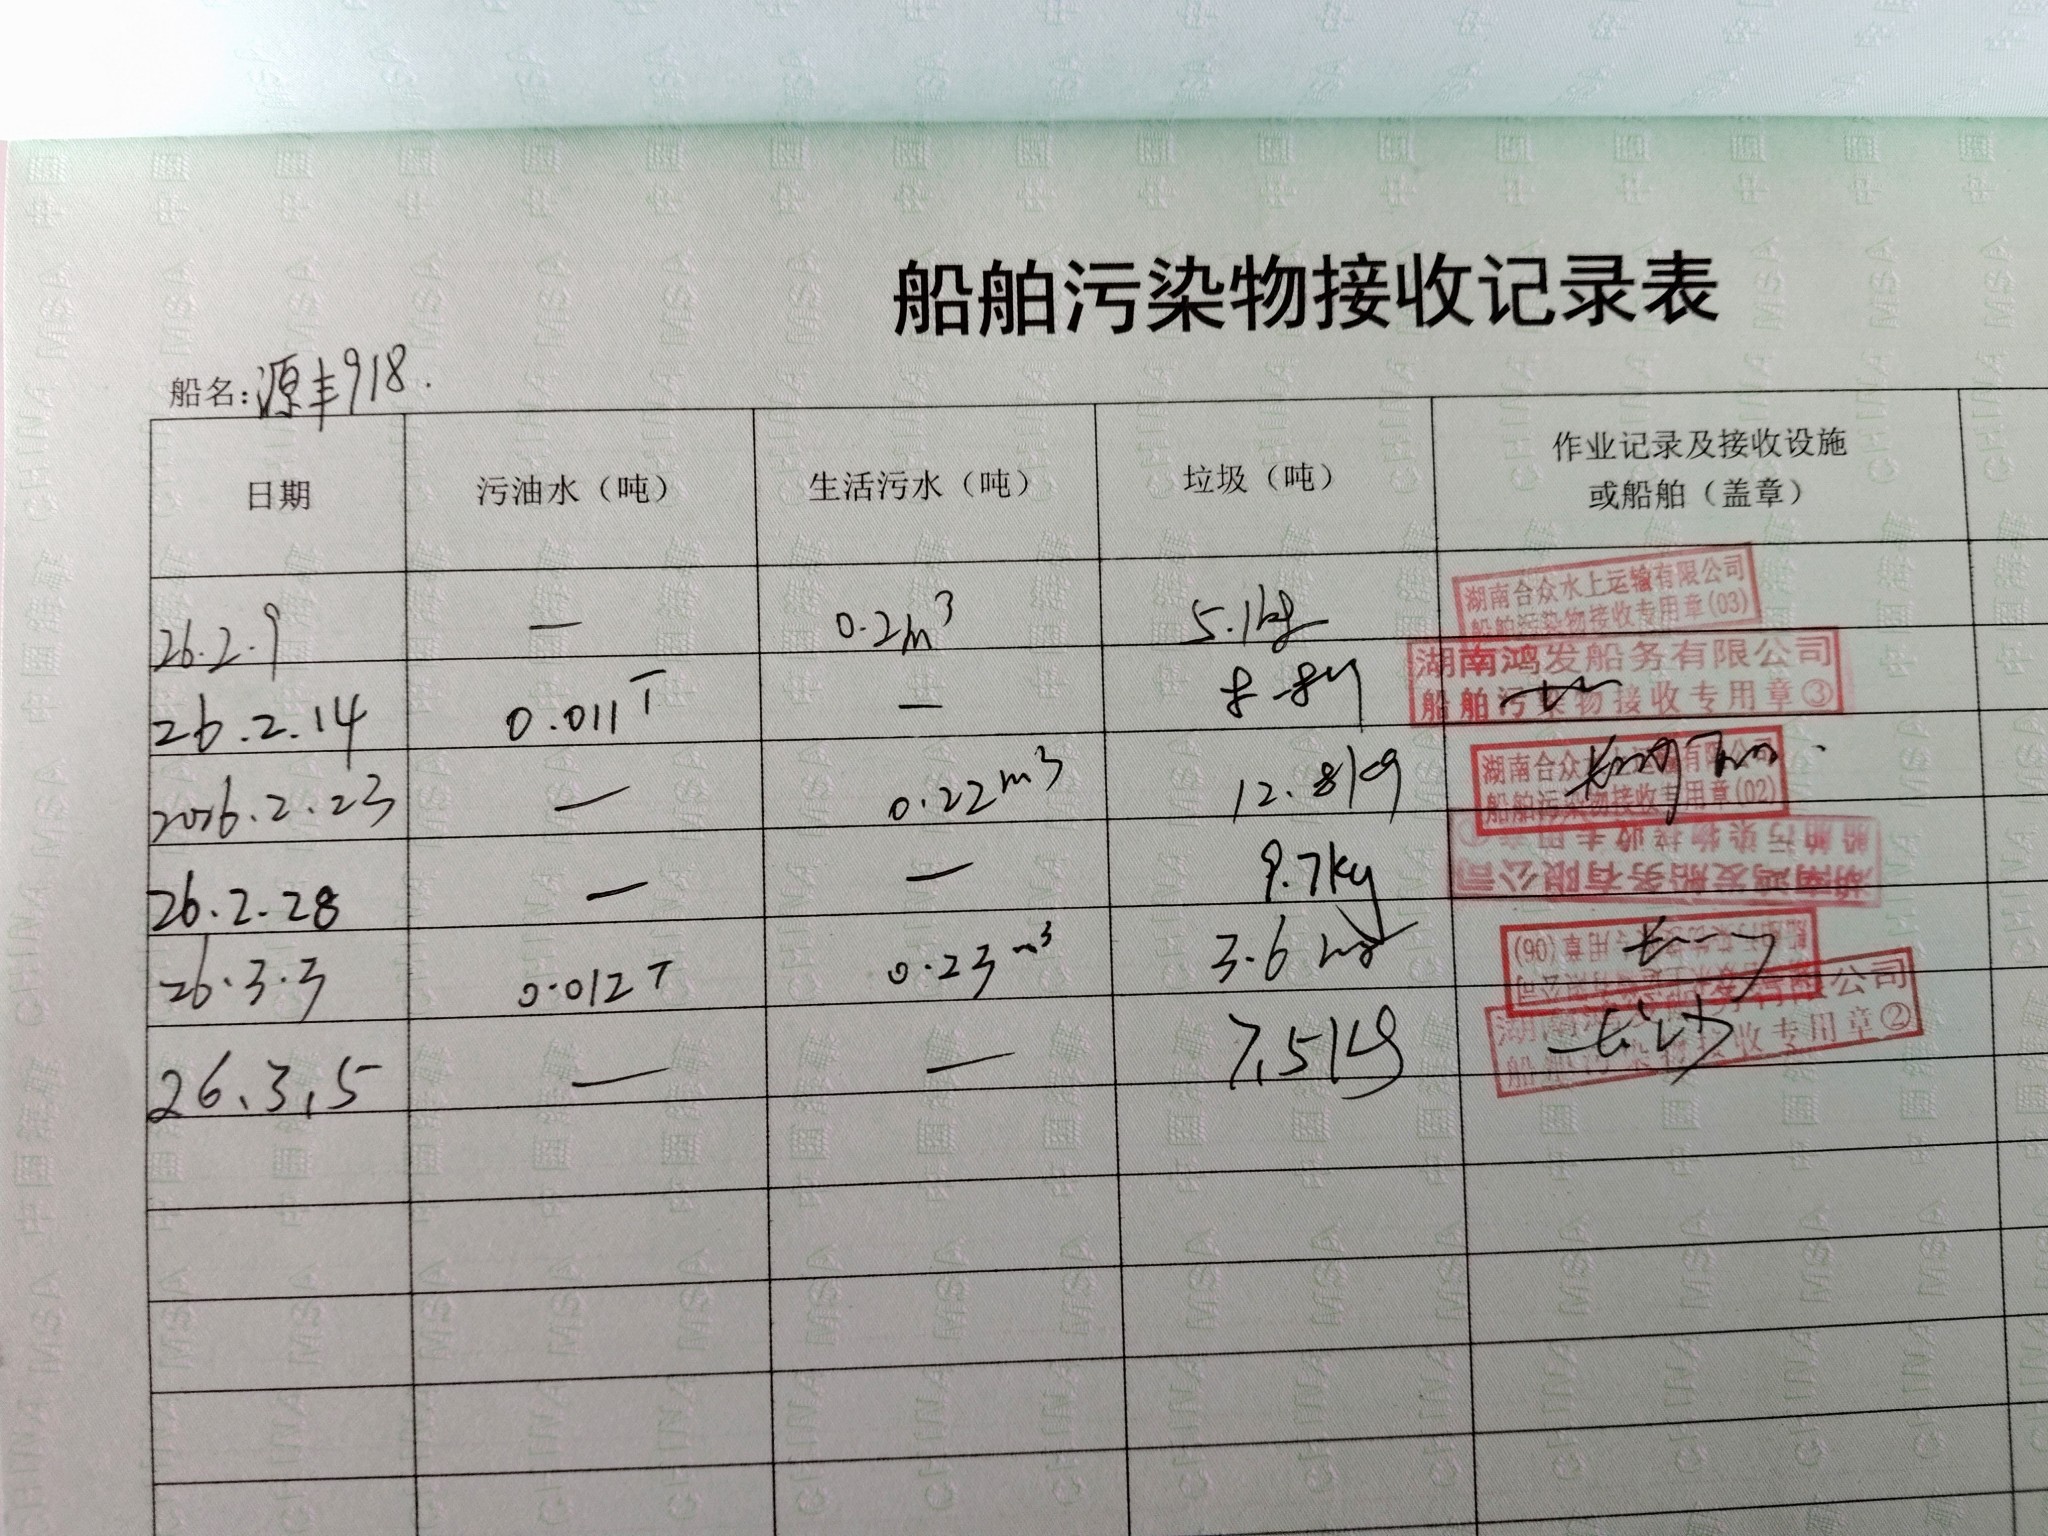 船舶污染物接收记录表
船名:源丰918.
日期 污油水（吨） 生活污水（吨） 垃圾（吨） 作业记录及接收设施
或船舶（盖章）
26.2.9 — 0.2m³ 5.1kg
湖南合众水上运输有限公司
船舶污染物接收专用章(03)
26.2.14 0.011T — 8.8
湖南鸿发船务有限公司
船舶污染物接收专用章③
2026.2.23 — 0.22m³ 12.8kg
湖南合众水上运输有限公司
船舶污染物接收专用章(02)
26.2.28 — — 9.7kg
湖南鸿发船务有限公司
船舶污染物接收专用章①
26.3.3 0.012T 0.23m³ 3.6
专用章(06)
26.3.5 — — 7.5kg
湖南鸿发船务有限公司
船舶污染物接收专用章②
中国海事 CHINA MSA